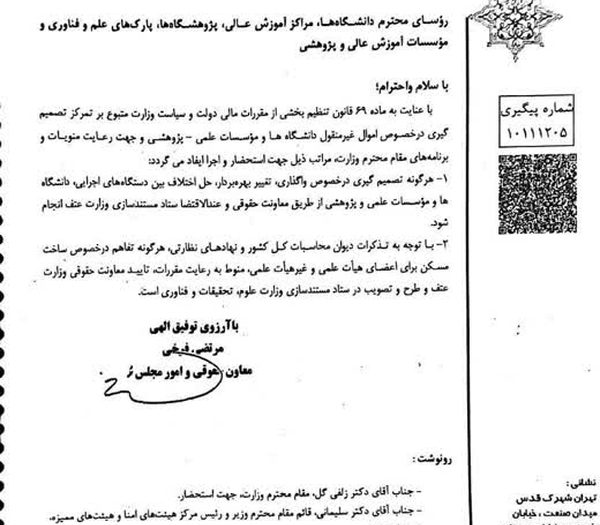 رؤسای محترم دانشگاه‌ها، مراکز آموزش عالی، پژوهشگاه‌ها، پارک‌های علم و فناوری و
مؤسسات آموزش عالی و پژوهشی
با سلام واحترام؛
با عنایت به ماده ۶۹ قانون تنظیم بخشی از مقررات مالی دولت و سیاست وزارت متبوع بر تمرکز تصمیم
گیری درخصوص اموال غیرمنقول دانشگاه ها و مؤسسات علمی - پژوهشی و جهت رعایت منویات و
برنامه‌های مقام محترم وزارت، مراتب ذیل جهت استحضار و اجرا ایفاد می گردد:
۱- هرگونه تصمیم گیری درخصوص واگذاری، تغییر بهره‌بردار، حل اختلاف بین دستگاه‌های اجرایی، دانشگاه
ها و مؤسسات علمی و پژوهشی از طریق معاونت حقوقی و عندالاقتضا ستاد مستندسازی وزارت عتف انجام
شود.
۲- با توجه به تذکرات دیوان محاسبات کل کشور و نهادهای نظارتی، هرگونه تفاهم درخصوص ساخت
مسکن برای اعضای هیأت علمی و غیرهیأت علمی، منوط به رعایت مقررات، تایید معاونت حقوقی وزارت
عتف و طرح و تصویب در ستاد مستندسازی وزارت علوم، تحقیقات و فناوری است.
باآرزوی توفیق الهی
مرتضی
معاون حقوقی و امور مجلس
رونوشت:
- جناب آقای دکتر زلفی گل، مقام محترم وزارت، جهت استحضار.
- جناب آقای دکتر سلیمانی، قائم مقام محترم وزیر و رئیس مرکز هیئت‌های امنا و هیئت‌های ممیزه،
شماره پیگیری
۱۰۱۱۱۲۰۵
نشانی:
تهران شهرک قدس
میدان صنعت، خیابان